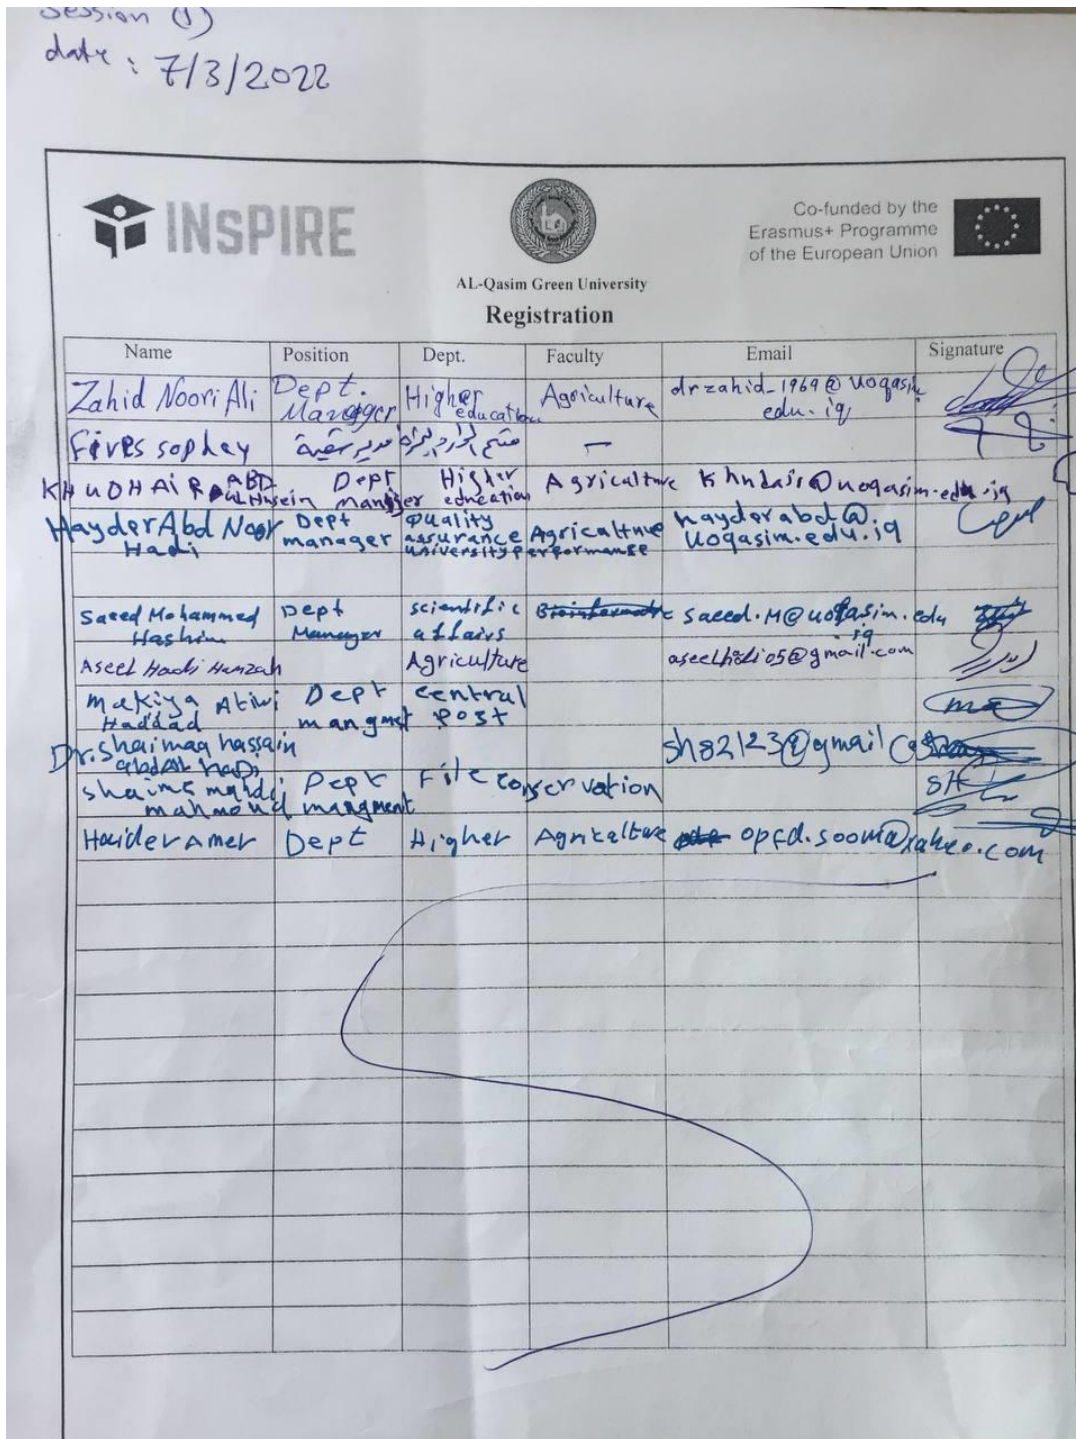 Session (1)
date : 7/3/2022
INsPIRE
Co-funded by the
Erasmus+ Programme
of the European Union
AL-Qasim Green University
Registration
Name Position Dept. Faculty Email Signature
Zahid Noori Ali Dept. Manager Higher education Agriculture drzahid_1969@uoqasim.edu.iq
Fires
KHUDHAIR ABD Dept manijer Higher education Agricalture Khudair@uoqasim.edu.iq
Hayder Abd Noor Hadi Dept manager quality assurance university performanse Agricaltnve hayderabd@uoqasim.edu.iq
Saeed Mohammed Hashim Dept Manager scientific affairs saeed.M@uoqasim.edu.iq
Aseel Hadi Hamzah Agriculture aseelhadi05@gmail.com
Makiya Atiwi Haddad Dept mangmet central post
Dr. shaimaa hassain sh82123@gmail
shaima mahdi mahmoud Dept mangment File conservation SH
Haider Amer Dept Higher Agricalture